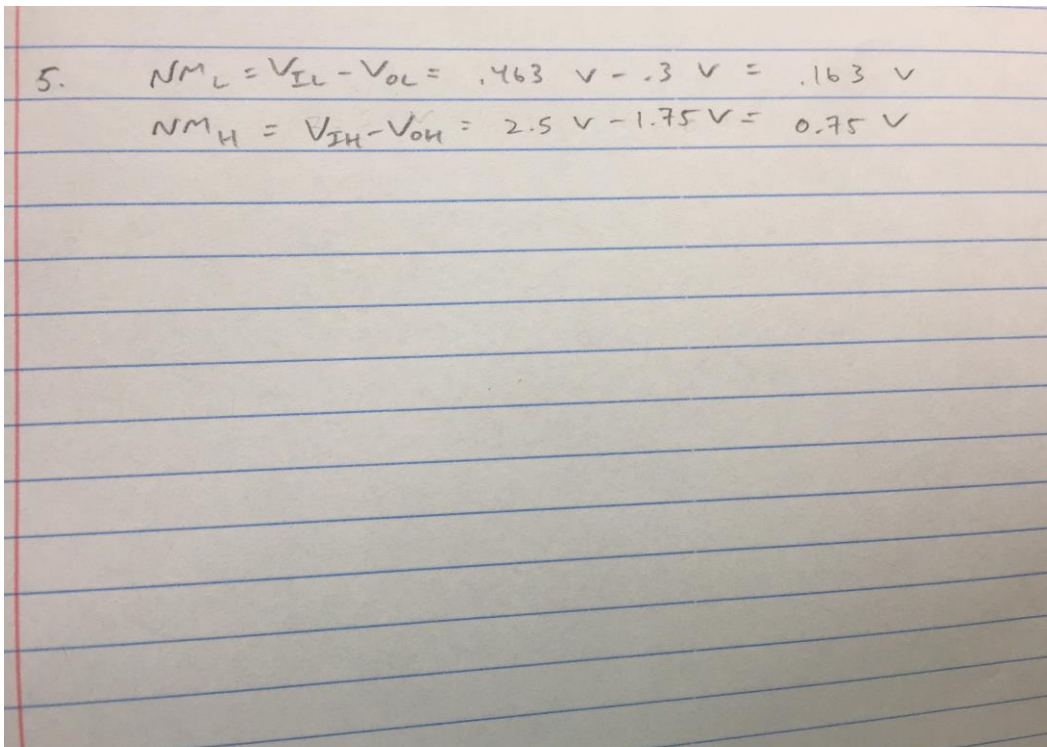 5. NM_L = V_IL - V_OL = .463 V - .3 V = .163 V
NM_H = V_IH - V_OH = 2.5 V - 1.75 V = 0.75 V